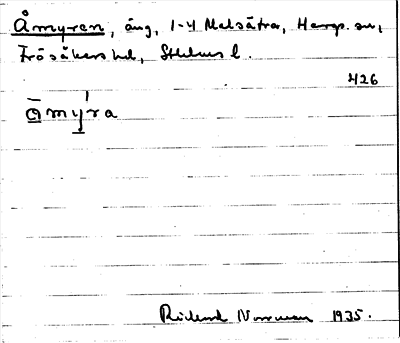 Åmyren, äng, 1-4 Malsätra, Hargs sn,
Frösåkers hd, Sthlms l.
426
āmýra
Rickard Norrman 1935.